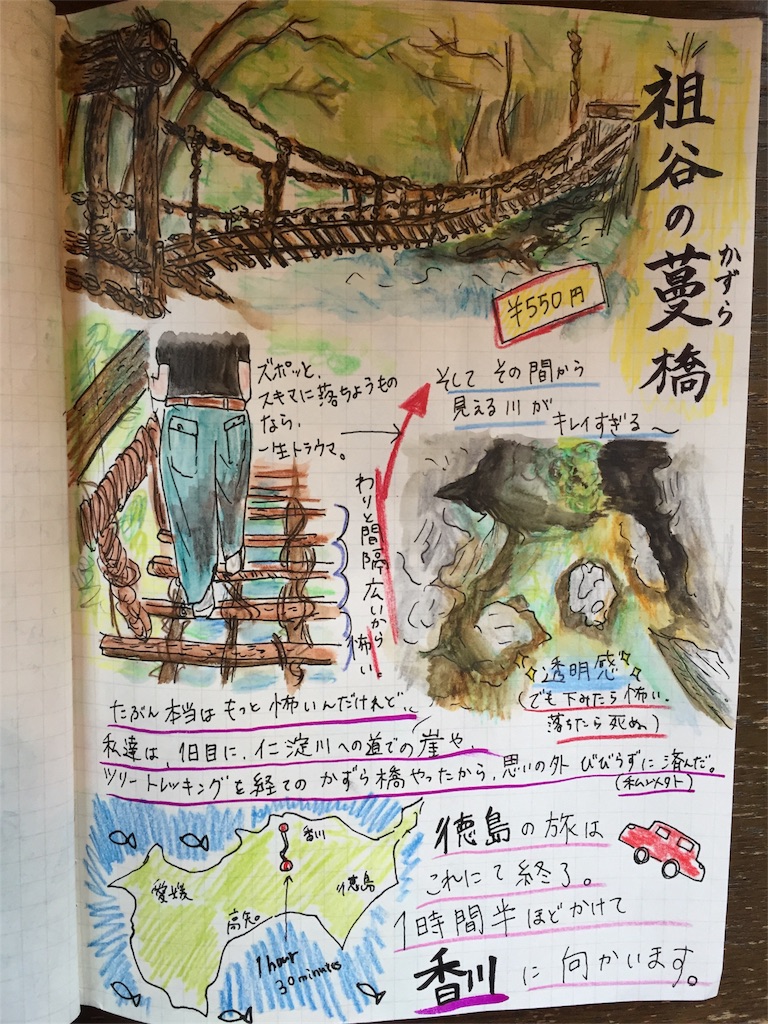 祖谷の蔓橋
かずら
¥550円
ズポッと、
スキマに落ちようもの
なら、
一生トラウマ。
わりと間隔広いから
怖い。
そして その間から
見える川が
キレイすぎる〜
透明感
(でも下みたら怖い。
落ちたら死ぬ)
たぶん本当はもっと怖いんだけれど、
私達は、1日目に、仁淀川への道での崖や、
ツリートレッキングを経てのかずら橋やったから、思いの外びびらずに済んだ。
(私以外)
香川
愛媛
徳島
高知。
1 hour
30 minutes
徳島の旅は
これにて終了。
1時間半ほどかけて
香川に向かいます。